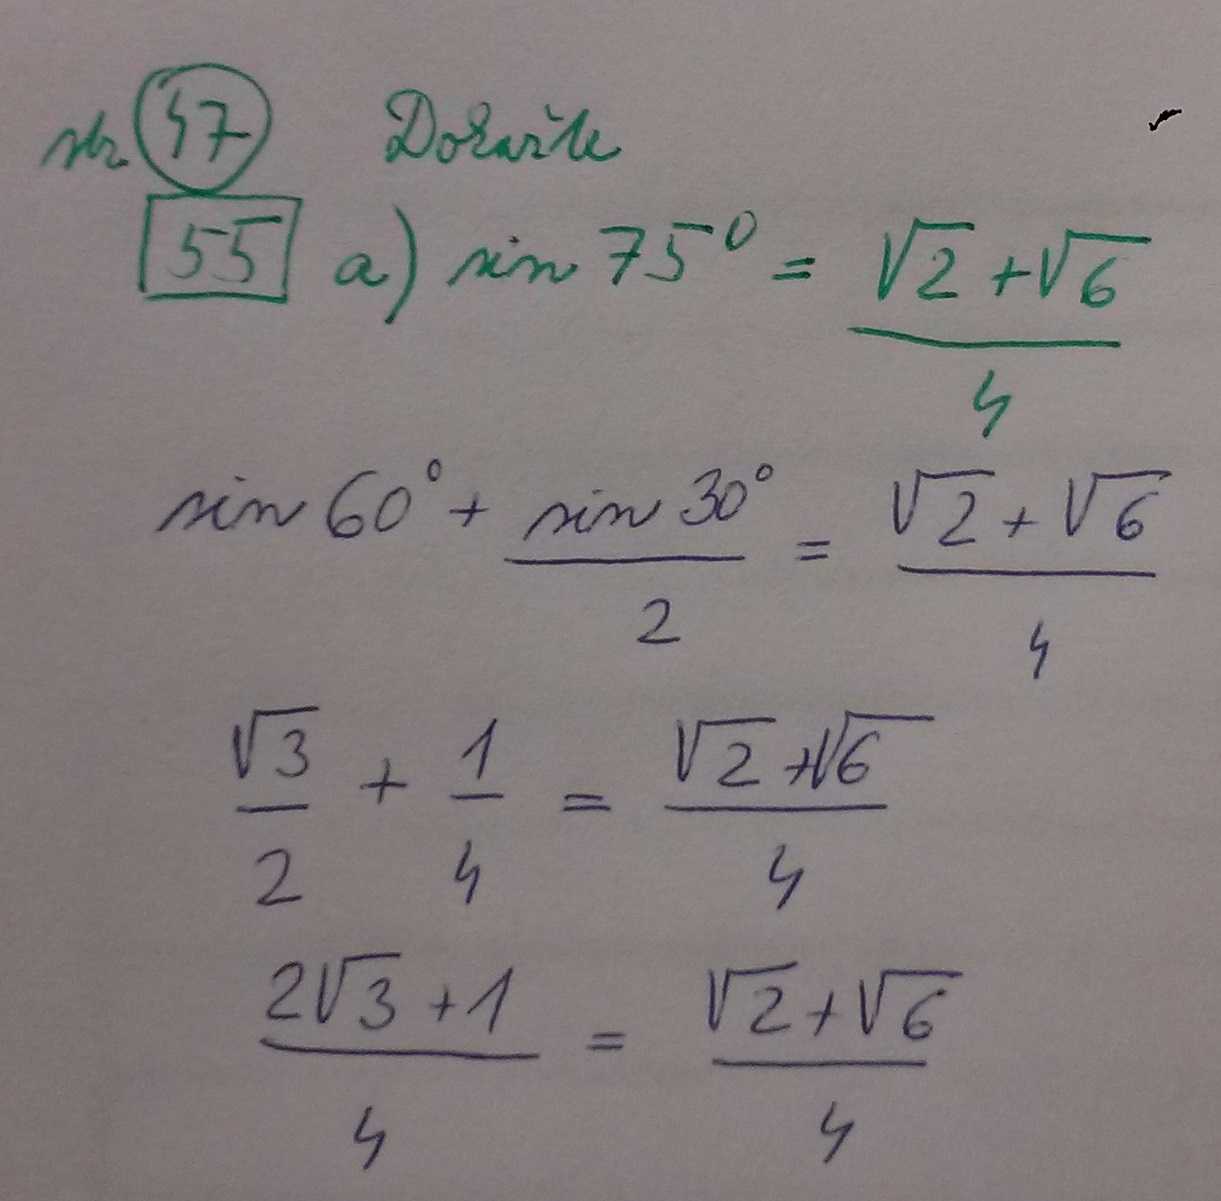 str. 47 Dokažte
55 a) sin 75° = √2 + √6 / 4
sin 60° + sin 30° / 2 = √2 + √6 / 4
√3 / 2 + 1 / 4 = √2 + √6 / 4
2√3 + 1 / 4 = √2 + √6 / 4